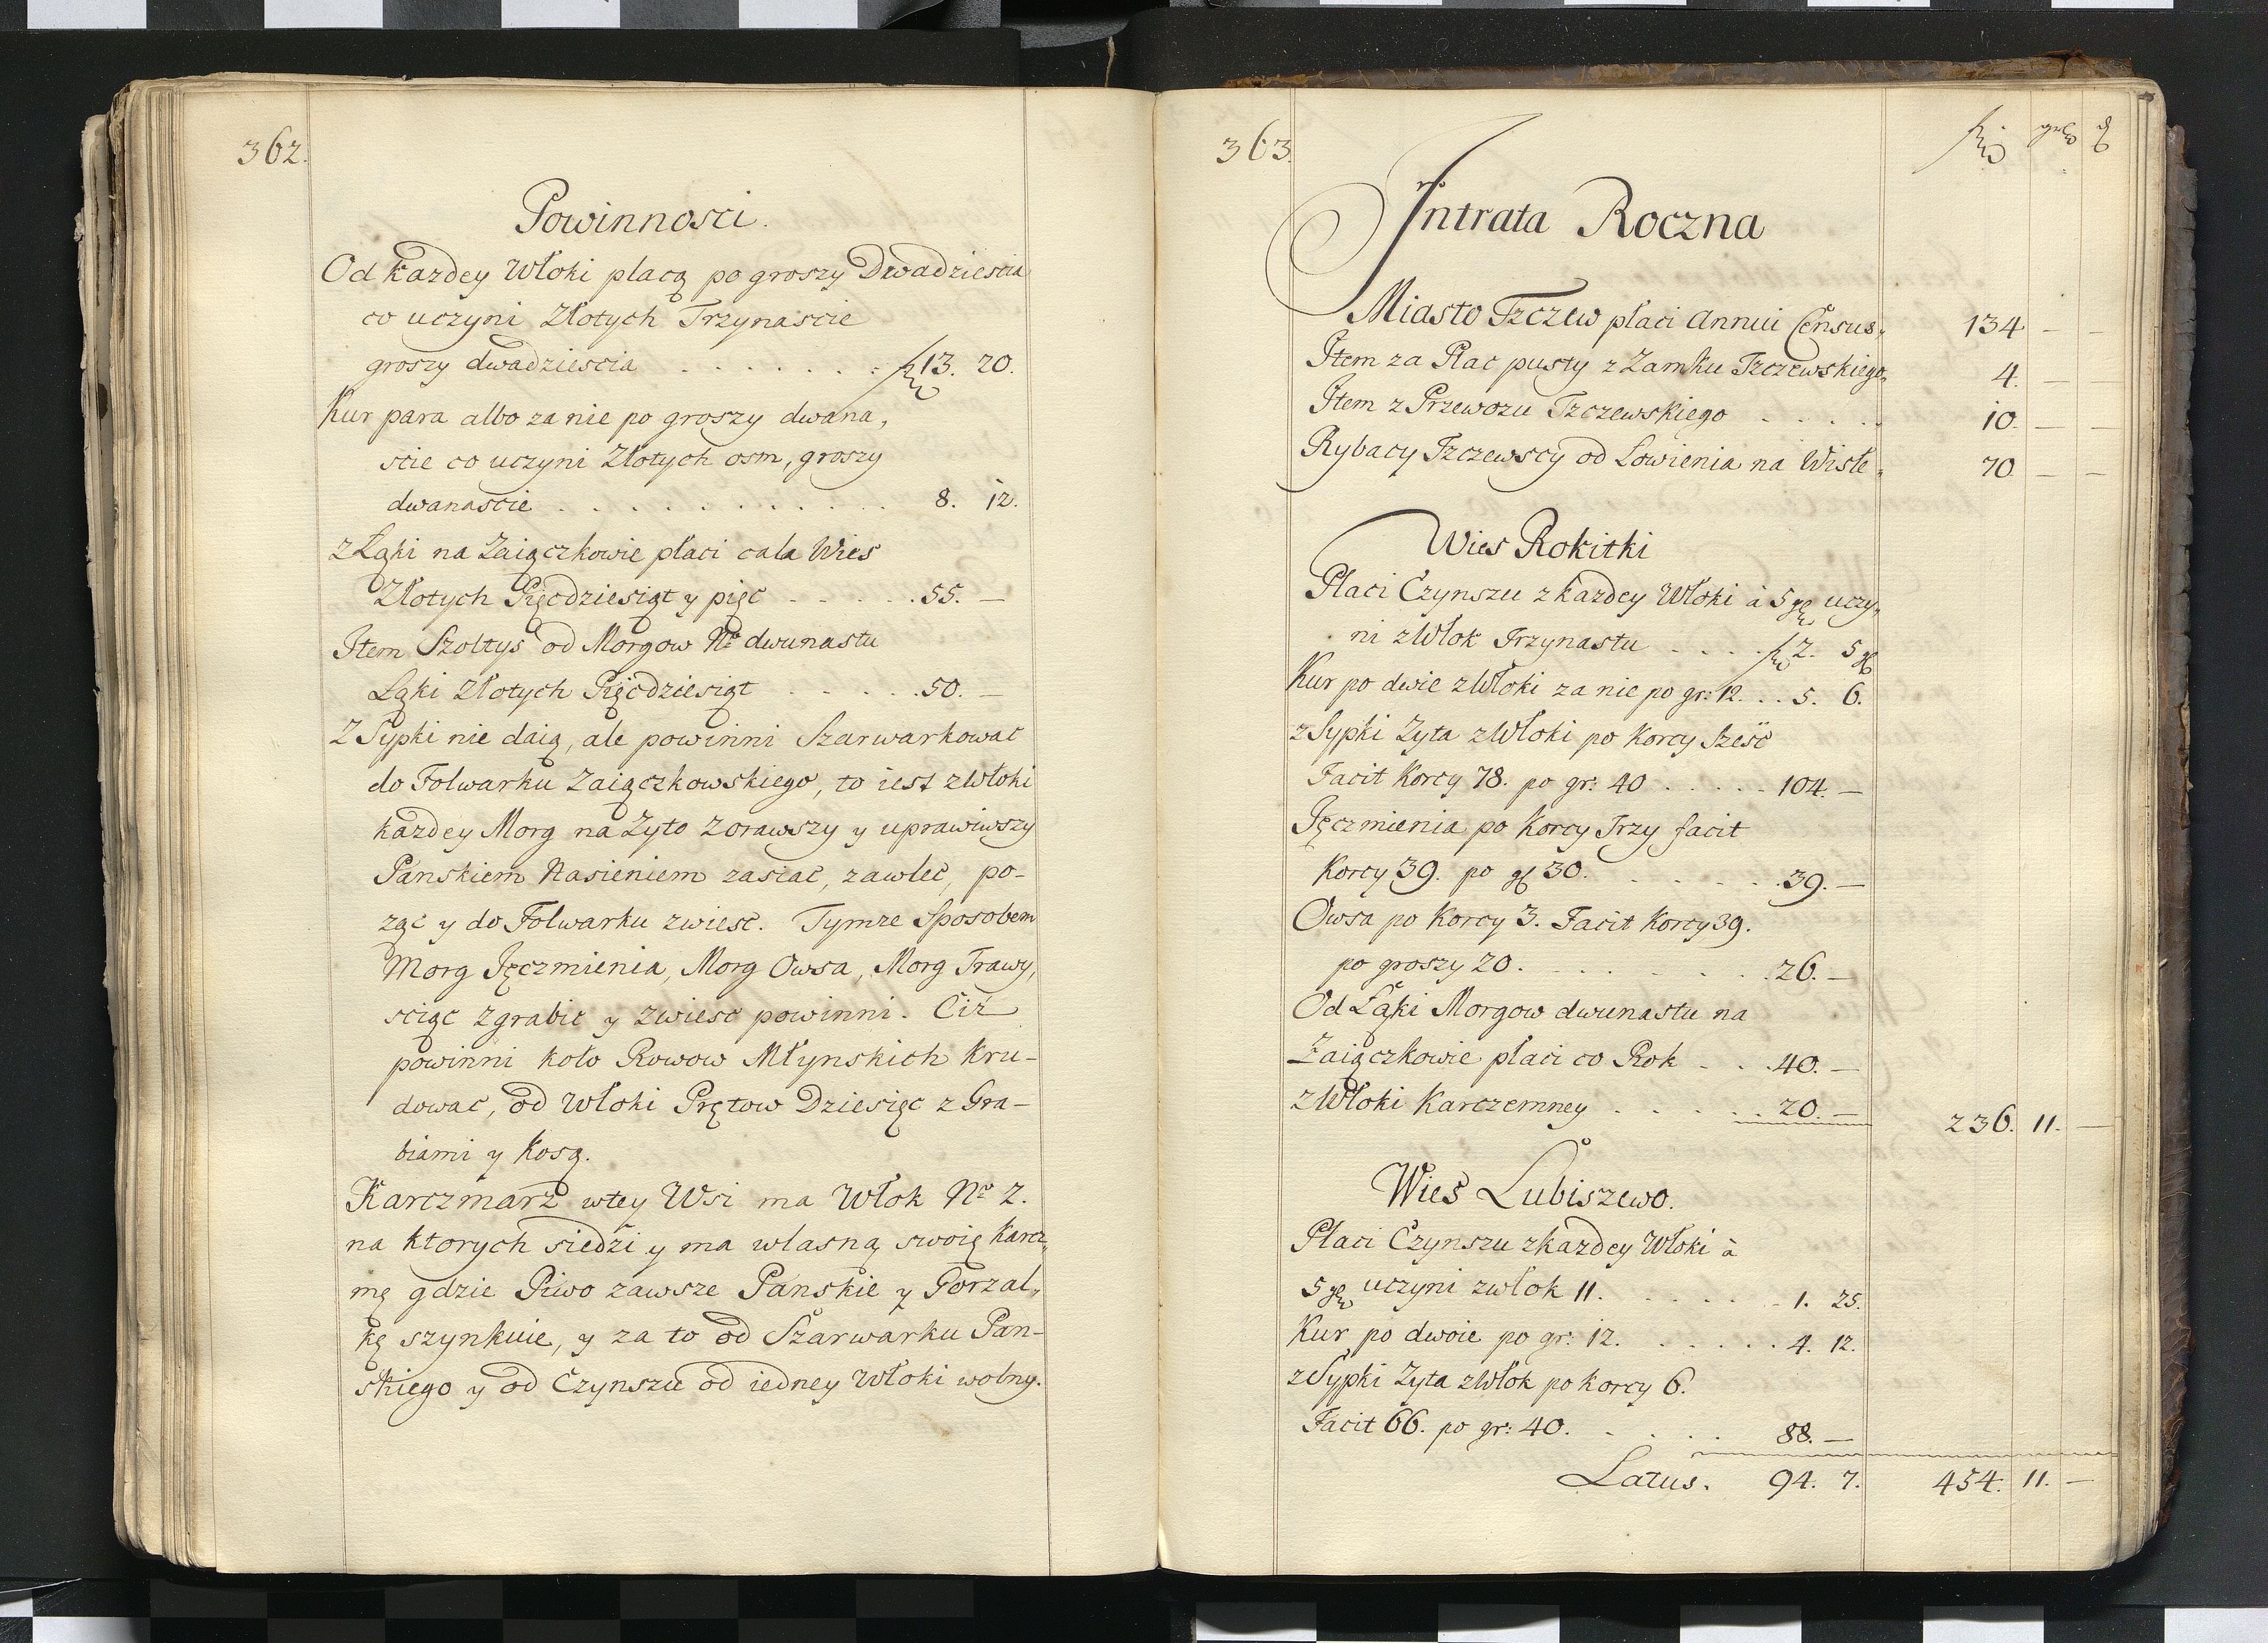 362.
Powinnosci.
Od każdey Włoki płacą po groszy Dwadziescia
co uczyni Złotych Trzynascie
groszy dwadziescia . . . . . . . 13. 20.
Kur para albo za nie po groszy dwana,
scie co uczyni Złotych osm, groszy
dwanascie . . . . . . . . . . . . 8. 12.
z Łąki na Zaiączkowie płaci cała Wies
Złotych Pięcdziesiąt y pięc - - - - - . 55. —
Item Szoltys od Morgow Nº dwunastu
Łąki Złotych Pięcdziesiąt - - - - . 50. —
Z Sypki nie daią, ale powinni Szarwarkowac
do Folwarku Zaiączkowskiego, to iest z Włoki
każdey Morg na Żyto Zorawszy y uprawiwszy
Panskiem Nasieniem zasiac, zawlec, po-
żąc y do Folwarku zwiesc. Tymże Sposobem
Morg Jęczmienia, Morg Owsa, Morg Trawy,
sciąc zgrabic y zwiesc powinni. Ciż
powinni koło Rowow Młynskich Kru-
dowac, od Włoki Prętow Dziesięc z Gra-
biami y Kosą.
Karczmarz wtey Wsi ma Włok Nº 2.
na ktorych siedzi y ma własną swoię Karcz,
mę gdzie Piwo zawsze Panskie y Gorzał,
kę szynkuie, y za to od Szarwarku Pan-
skiego y od Czynszu od iedney Włoki wolny.
363.
Intrata Roczna
Miasto Tczew płaci Annui Census, 134 — —
Item za Plac pusty z Zamku Tczewskiego, 4. — —
Item z Przewozu Tczewskiego . . . . . 10. — —
Rybacy Tczewscy od Łowienia na Wisle, 70 — —
Wies Rokitki
Płaci Czynszu z każdey Włoki à 5 uczy,
ni z Włok Trzynastu . . . . 2. 5
Kur po dwie z Włoki za nie po gr: 12. . . 5. 6.
z Sypki Żyta z Włoki po Korcy Szesć
Facit Korcy 78. po gr: 40 . . . . . 104. —
Jęczmienia po Korcy Trzy facit
Korcy 39. po 30. . . . . . 39. —
Owsa po Korcy 3. Facit Korcy 39.
po groszy 20. . . . . . . . 26. —
Od Łąki Morgow dwunastu na
Zaiączkowie płaci co Rok - . . 40. —
z Włoki Karczemney . . . . . 20. — 236. 11. —
Wies Lubiszewo.
Płaci Czynszu z każdey Włoki à
5 uczyni z włok 11. . . . . . . 1. 25.
Kur po dwoie po gr: 12. . . . . . 4. 12.
z Sypki Żyta z Włok po Korcy 6.
Facit 66. po gr: 40. . . . . 88. —
Latus. 94. 7. 454. 11. —